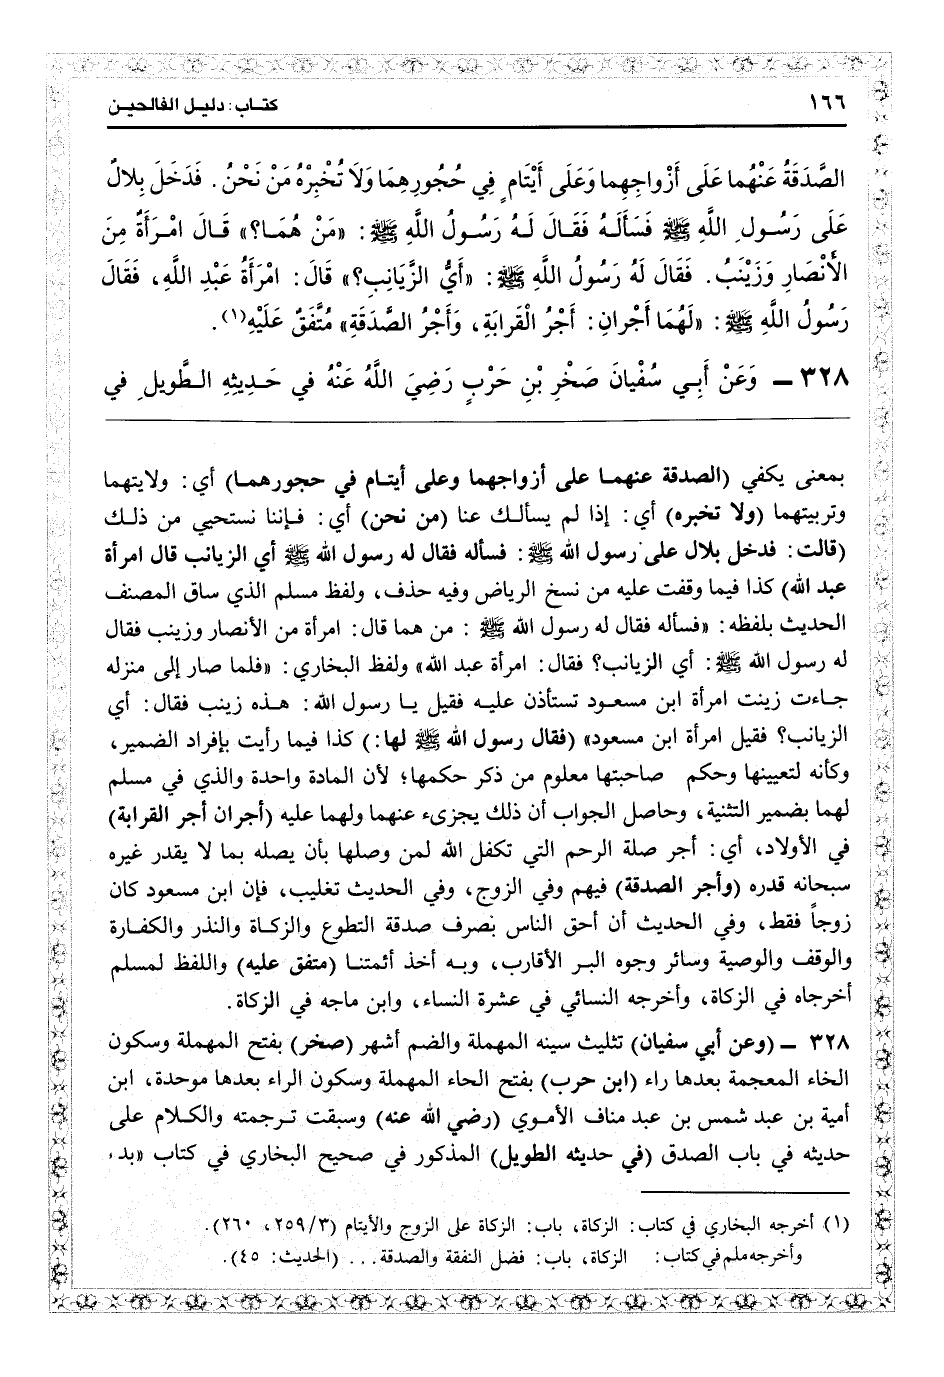 ١٦٦
كتاب: دليل الفالحين
الصَّدَقَةُ عَنْهُما عَلَى أَزْواجِهِما وَعَلَى أَيْتَامٍ فِي حُجُورِهِمَا وَلَا تُخْبِرْهُ مَنْ نَحْنُ. فَدَخَلَ بِلالٌ
عَلَى رَسُولِ اللَّهِ ﷺ فَسَأَلَهُ فَقَالَ لَهُ رَسُولُ اللَّهِ ﷺ: «مَنْ هُمَا؟» قَالَ امْرَأَةٌ مِنَ
الأَنْصَارِ وَزَيْنَبُ. فَقَالَ لَهُ رَسُولُ اللَّهِ ﷺ: «أَيُّ الزَّيَانِبِ؟» قَالَ: امْرَأَةُ عَبْدِ اللَّهِ، فَقَالَ
رَسُولُ اللَّهِ ﷺ: «لَهُمَا أَجْرانِ: أَجْرُ الْقَرابَةِ، وَأَجْرُ الصَّدَقَةِ» مُتَّفَقٌ عَلَيْهِ(١).
٣٢٨ ـ وَعَنْ أَبِي سُفْيَانَ صَخْرِ بْنِ حَرْبٍ رَضِيَ اللَّهُ عَنْهُ في حَدِيثِهِ الطَّويلِ في
بمعنى يكفي (الصدقة عنهما على أزواجهما وعلى أيتام في حجورهما) أي: ولايتهما
وتربيتهما (ولا تخبره) أي: إذا لم يسألك عنا (من نحن) أي: فإننا نستحيي من ذلك
(قالت: فدخل بلال على رسول الله ﷺ: فسأله فقال له رسول الله ﷺ أي الزيانب قال امرأة
عبد الله) كذا فيما وقفت عليه من نسخ الرياض وفيه حذف، ولفظ مسلم الذي ساق المصنف
الحديث بلفظه: «فسأله فقال له رسول الله ﷺ : من هما قال: امرأة من الأنصار وزينب فقال
له رسول الله ﷺ: أي الزيانب؟ فقال: امرأة عبد الله» ولفظ البخاري: «فلما صار إلى منزله
جاءت زينت امرأة ابن مسعود تستأذن عليه فقيل يا رسول الله: هذه زينب فقال: أي
الزيانب؟ فقيل امرأة ابن مسعود» (فقال رسول الله ﷺ لها:) كذا فيما رأيت بإفراد الضمير،
وكأنه لتعيينها وحكم صاحبتها معلوم من ذكر حكمها؛ لأن المادة واحدة والذي في مسلم
لهما بضمير التثنية، وحاصل الجواب أن ذلك يجزىء عنهما ولهما عليه (أجران أجر القرابة)
في الأولاد، أي: أجر صلة الرحم التي تكفل الله لمن وصلها بأن يصله بما لا يقدر غيره
سبحانه قدره (وأجر الصدقة) فيهم وفي الزوج، وفي الحديث تغليب، فإن ابن مسعود كان
زوجاً فقط، وفي الحديث أن أحق الناس بصرف صدقة التطوع والزكاة والنذر والكفارة
والوقف والوصية وسائر وجوه البر الأقارب، وبه أخذ أئمتنا (متفق عليه) واللفظ لمسلم
أخرجاه في الزكاة، وأخرجه النسائي في عشرة النساء، وابن ماجه في الزكاة.
٣٢٨ ـ (وعن أبي سفيان) تثليث سينه المهملة والضم أشهر (صخر) بفتح المهملة وسكون
الخاء المعجمة بعدها راء (ابن حرب) بفتح الحاء المهملة وسكون الراء بعدها موحدة، ابن
أمية بن عبد شمس بن عبد مناف الأموي (رضي الله عنه) وسبقت ترجمته والكلام على
حديثه في باب الصدق (في حديثه الطويل) المذكور في صحيح البخاري في كتاب «بدء
(١) أخرجه البخاري في كتاب: الزكاة، باب: الزكاة على الزوج والأيتام (٢٥٩/٣، ٢٦٠).
وأخرجه ملم في كتاب: الزكاة، باب: فضل النفقة والصدقة... (الحديث: ٤٥).